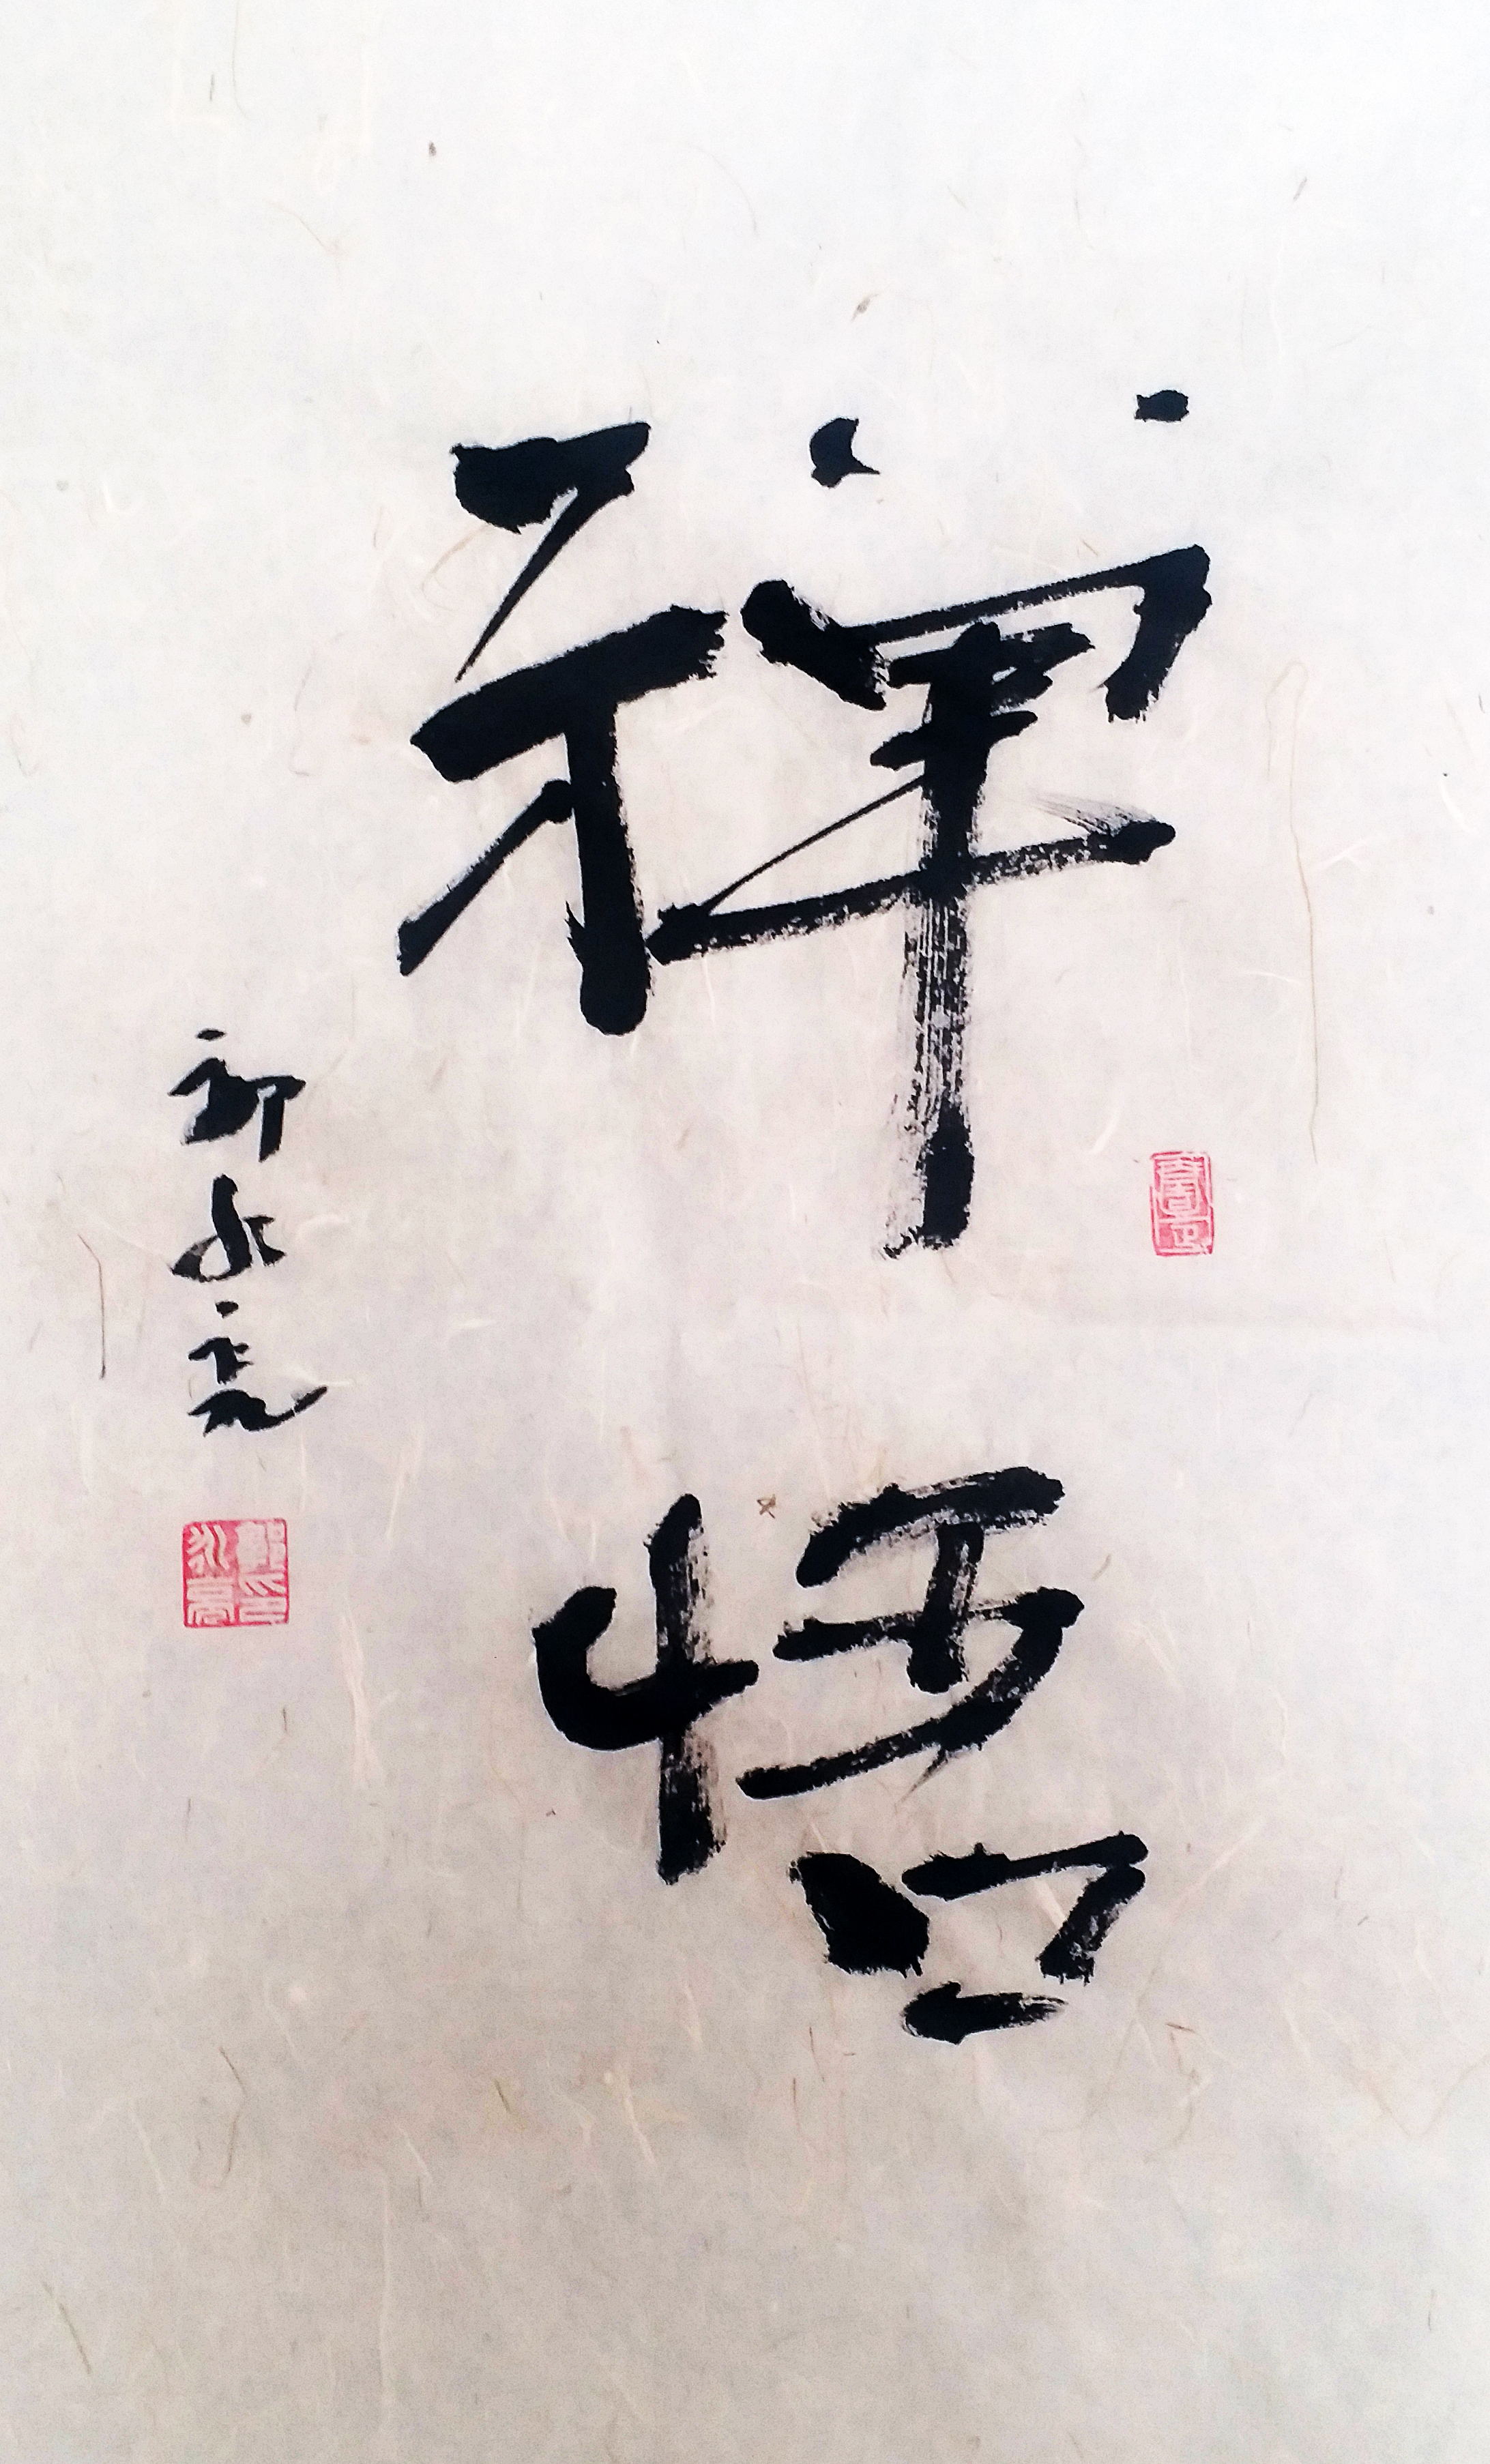 禅悟
郭永亮